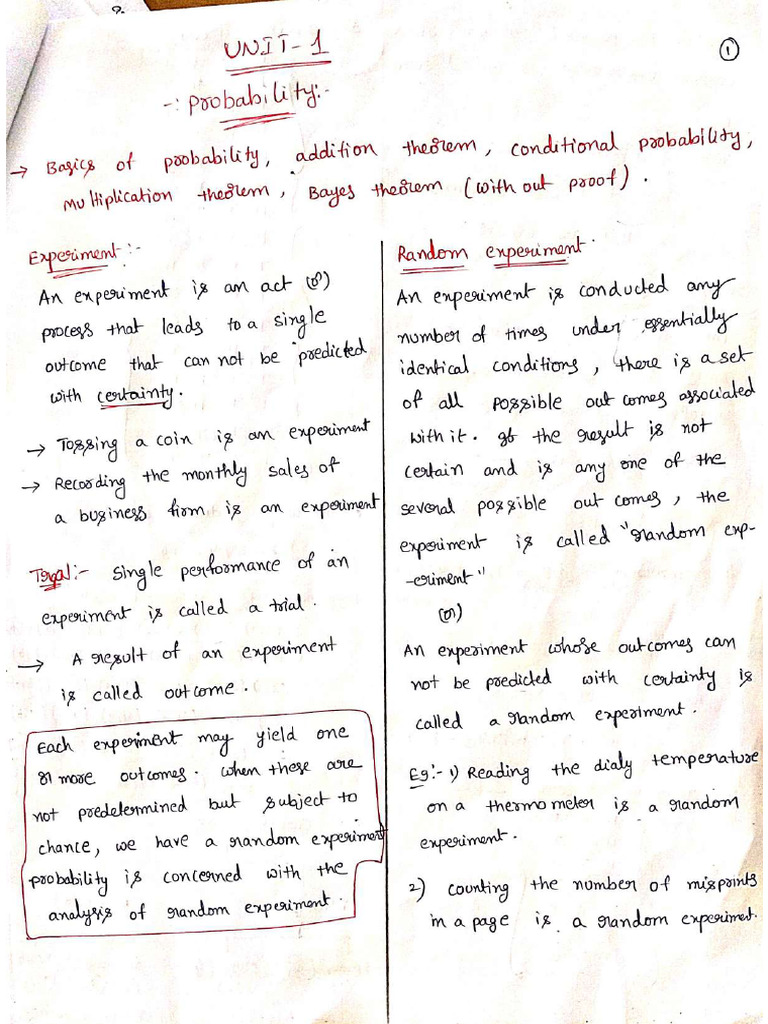 UNIT-1
1
-: Probability:-
→ Basics of probability, addition theorem, conditional probability,
Multiplication theorem, Bayes theorem (with out proof).
Experiment:-
An experiment is an act (or)
process that leads to a single
outcome that can not be predicted
with certainty.
→ Tossing a coin is an experiment
→ Recording the monthly sales of
a business firm is an experiment
Trial:- Single performance of an
experiment is called a trial.
→ A result of an experiment
is called outcome.
Each experiment may yield one
or more outcomes. when these are
not predetermined but subject to
chance, we have a random experiment
probability is concerned with the
analysis of random experiment.
Random experiment.
An experiment is conducted any
number of times under essentially
identical conditions, there is a set
of all possible out comes associated
with it. If the result is not
certain and is any one of the
several possible out comes, the
experiment is called "random exp-
-eriment"
(or)
An experiment whose outcomes can
not be predicted with certainty is
called a random experiment.
Eg:- 1) Reading the dialy temperature
on a thermometer is a random
experiment.
2) Counting the number of misprints
in a page is a random experimet.